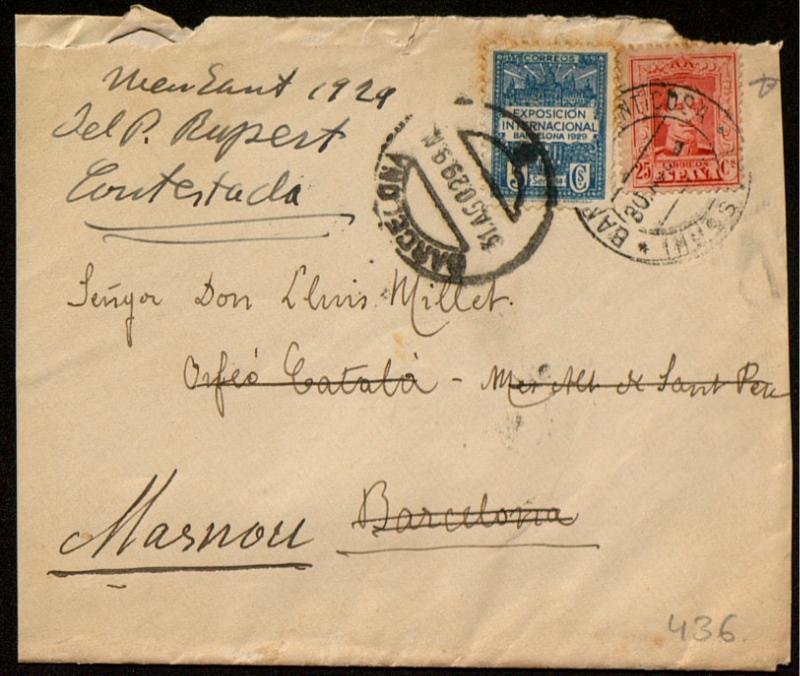 1929
Del P. Rupert
Contestada
CORREOS
EXPOSICIÓN
INTERNACIONAL
BARCELONA 1929
5 Cs
CORREOS
25 ESPAÑA Cs
BARCELONA
31 AGO 29 9
Señyor Don Lluis Millet.
Orfeó Català - Mes Alt de Sant Pere
Masnou Barcelona
436